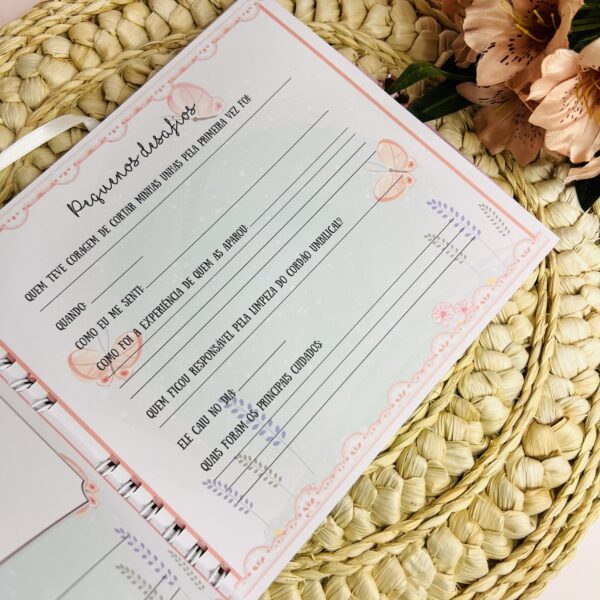 Pequenos desafios
QUEM TEVE CORAGEM DE CORTAR MINHAS UNHAS PELA PRIMEIRA VEZ FOI:
QUANDO:
COMO EU ME SENTI:
COMO FOI A EXPERIÊNCIA DE QUEM AS APAROU:
QUEM FICOU RESPONSAVEL PELA LIMPEZA DO CORDÃO UMBILICAL?
ELE CAIU NO DIA:
QUAIS FORAM OS PRINCIPAIS CUIDADOS: